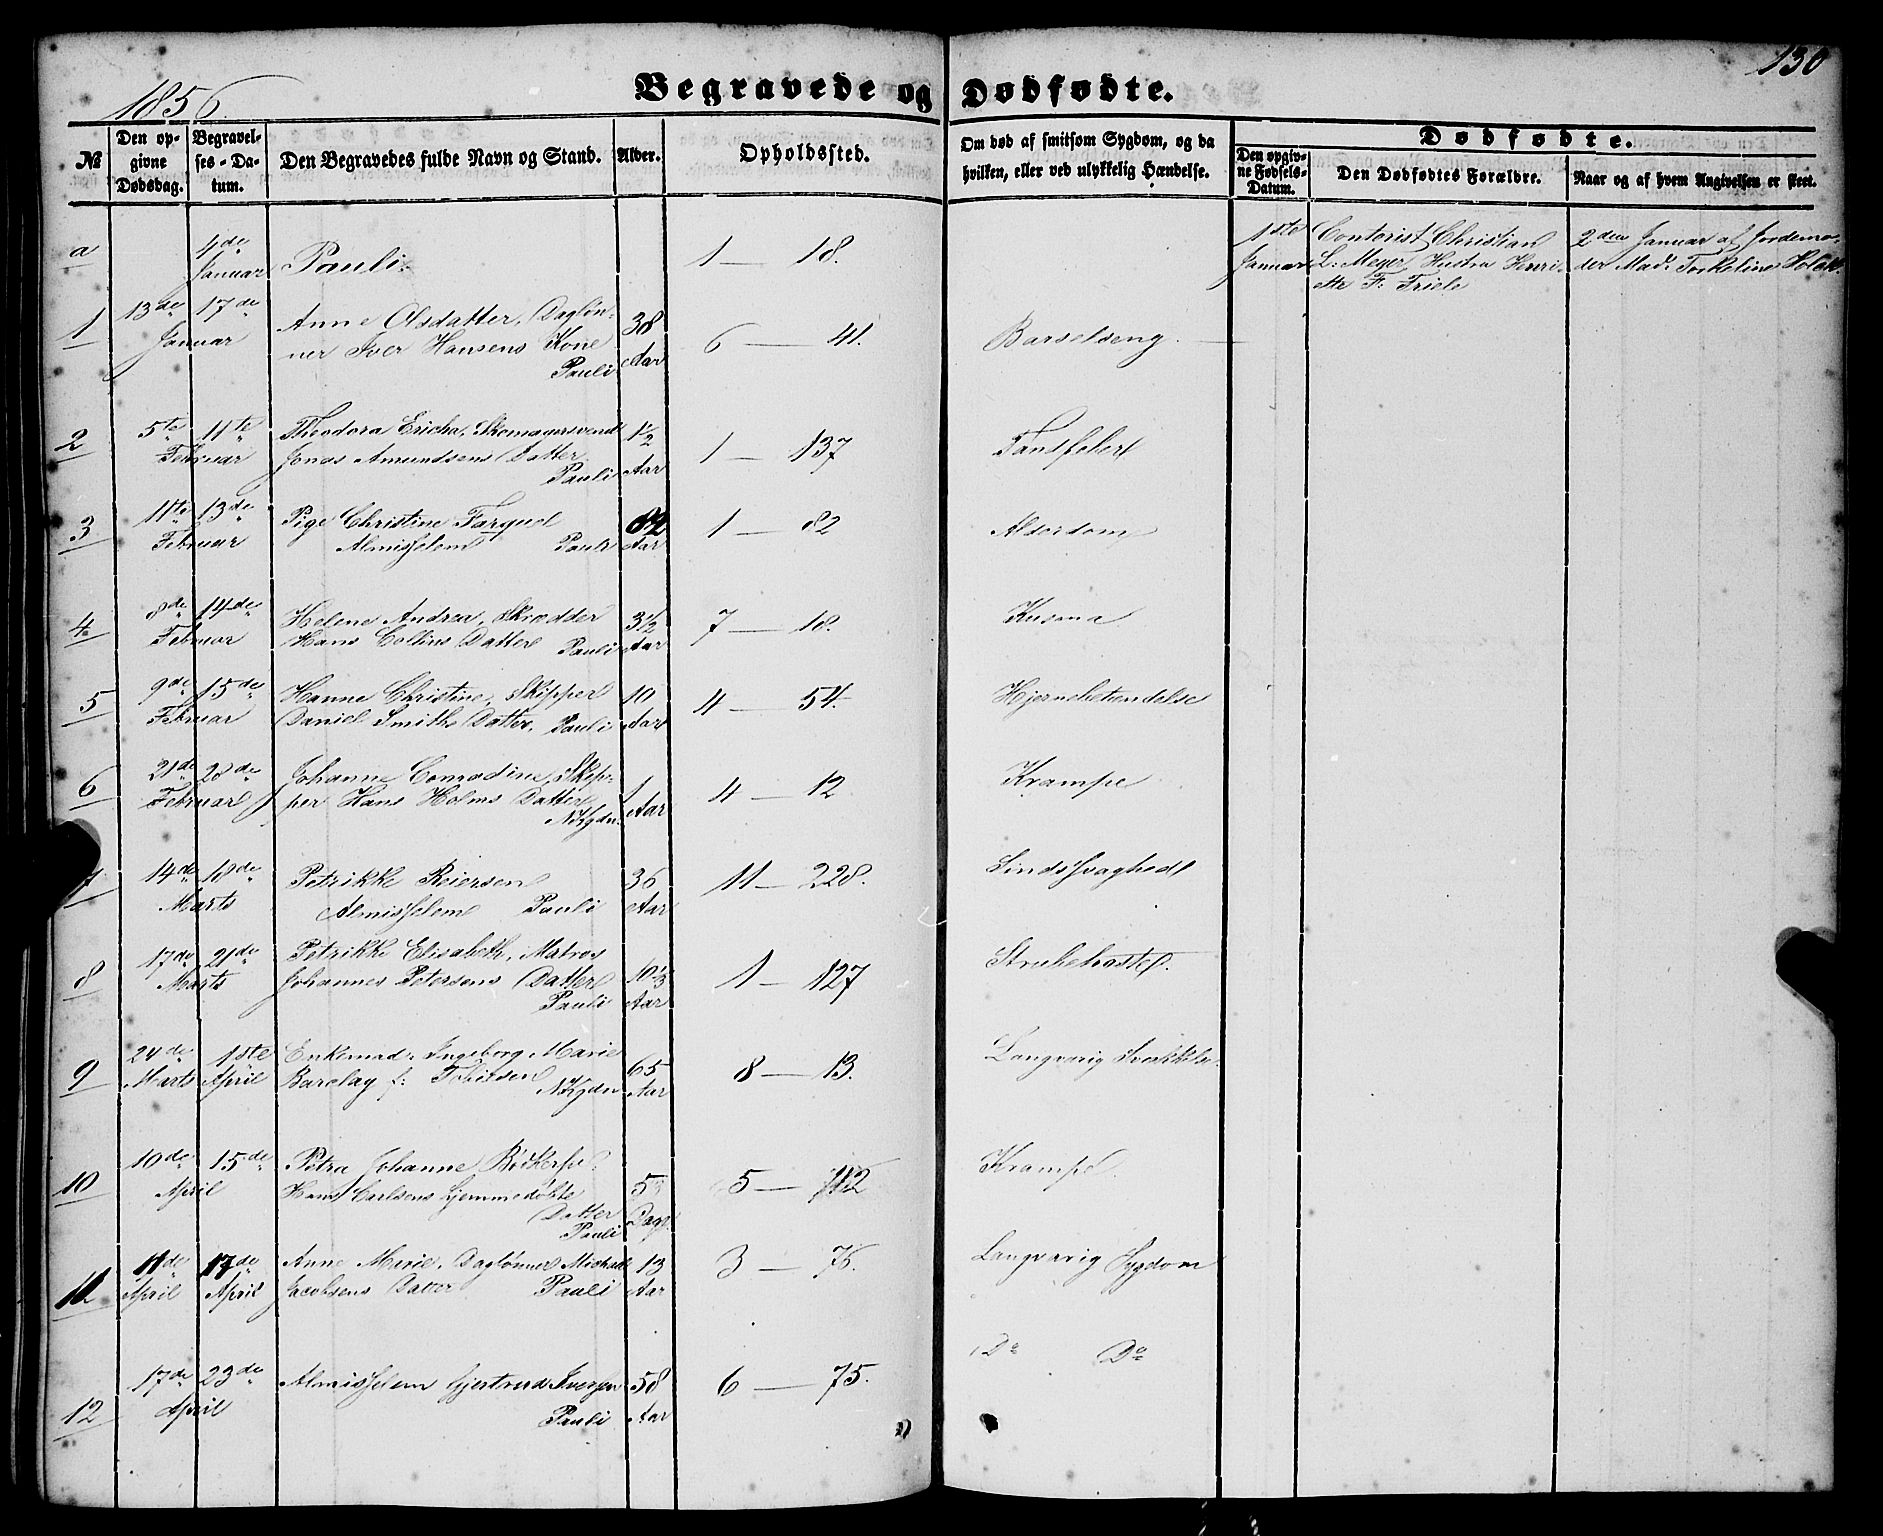 130
1856.
Begravede og Dødfødte.
No
Den opgivne Dødsdag.
Begravelses-Datum.
Den Begravedes fulde Navn og Stand.
Alder.
Opholdssted.
Om død af smitsom Sygdom, og da hvilken, eller ved ulykkelig Hændelse.
Dødfødte.
Den opgivne Fødsels-Datum.
Den Dødfødtes Forældre.
Naar og af hvem Angivelsen er skeet.
a 4de Januar Pauli. 1 — 18. 1ste Januar
Contorist Christian
L. Meyer, Hustru Henri-
ette F. Friele
2den Januar af Jordemo-
der Mad. Torkeline
1 13de 17de Januar
Anne Olsdatter, Dagløn-
ner Iver Hansens Kone
Pauli
38 Aar 6 — 41. Barselseng.
2 5te 11te Februar
Theodora Ericha, Skomagersvend
Jonas Amundsens Datter
Pauli
1½ Aar 1 — 137 Tandfeber
3 11te 13de Februar
Pige Christine
Almisselem Pauli
82 Aar 1 — 82 Alderdom
4 8de 14de Februar
Helene Andrea, Skrædder
Hans Collins Datter Pauli
3½ Aar 7 — 18. Kusma
5 9de 15de Februar
Hanne Christine, Skipper
Daniel Smiths Datter, Pauli
10 Aar 4 — 54. Hjernebetændelse
6 21de 28de Februar
Johanne Conradine, Skip-
per Hans Holms Datter
N Kgdn.
1 Aar 4 — 12. Krampe
7 14de 18de Marts
Petrikke Reiersen
Almisselem Pauli
36 Aar 11 — 228. Sindssvaghed
8 17de 21de Marts
Petrikke Elisabeth, Matros
Johannes Petersens Datter
Pauli
10⅓ Aar 1 — 127 Strubehoste
9 24de Marts 1ste April
Enkemad. Ingeborg Marie
Barclay f. Tobiesen
N Kgdn
65 Aar 8 — 13. Langvarig Svækkelse
10 10de 15de April
Petra Johanne,
Hans Carlsens hjemmedøbte
Datter
Pauli
5 Dage 5 — 112 Krampe
11 11de April 17de April
Anne Marie, Daglønner Michael
Jacobsens Datter Pauli
13 Aar 3 — 75. Langvarig Sygdom
12 17de 23de April
Almisselem Gjertrud Iversen
Pauli
58 Aar 6 — 75. Do Do